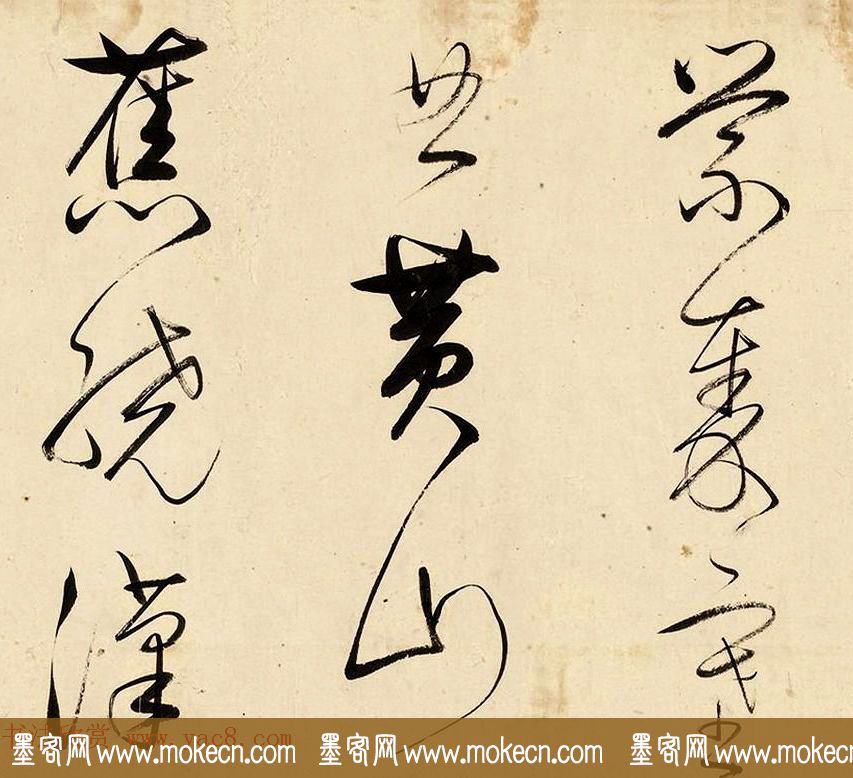 縈秦塞
曲黄山
舊繞漢
书法欣赏 www.yac8.com
墨客网 www.mokecn.com 墨客网 www.mokecn.com 墨客网 www.mokecn.com